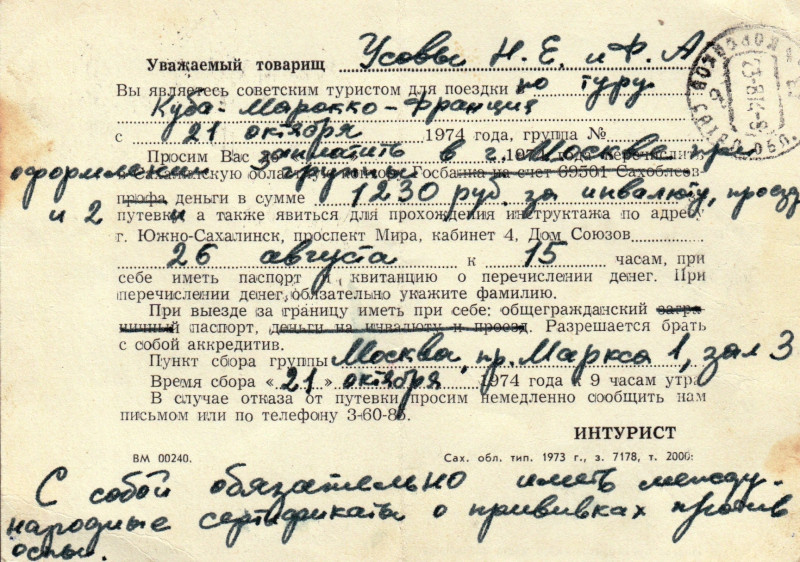 Уважаемый товарищ Усовы Н. Е. и Ф. А
Вы являетесь советским туристом для поездки по туру
Куба-Марокко-Франция
с 21 октября 1974 года, группа №
Просим Вас заплатить в г. Москве при
оформлении группы Госбанка на счет 69501 Сахоблсов-
профа деньги в сумме 1230 руб. за инвалюту, проезд
и 2 путевки а также явиться для прохождения инструктажа по адресу
г. Южно-Сахалинск, проспект Мира, кабинет 4, Дом Союзов
26 августа к 15 часам, при
себе иметь паспорт и квитанцию о перечислении денег. При
перечислении денег, обязательно укажите фамилию.
При выезде за границу иметь при себе: общегражданский загра-
ничный паспорт, деньги на инвалюту и проезд. Разрешается брать
с собой аккредитив.
Пункт сбора группы Москва, пр. Маркса 1, зал 3
Время сбора « 21 » октября 1974 года к 9 часам утра
В случае отказа от путевки просим немедленно сообщить нам
письмом или по телефону 3-60-85.
ИНТУРИСТ
ВМ 00240. Сах. обл. тип. 1973 г., з. 7178, т. 2000.
С собой обязательно иметь между-
народные сертификаты о прививках против
оспы.